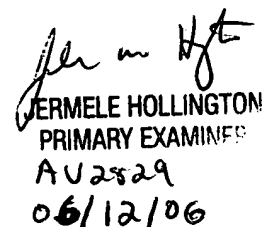 JERMELE HOLLINGTON
PRIMARY EXAMINER
AU2829
06/12/06